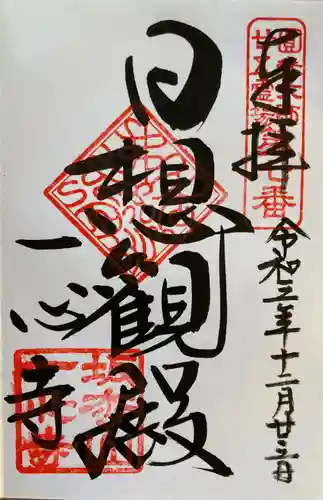 奉拝
令和三年十二月廿三日
日想観殿
一心寺